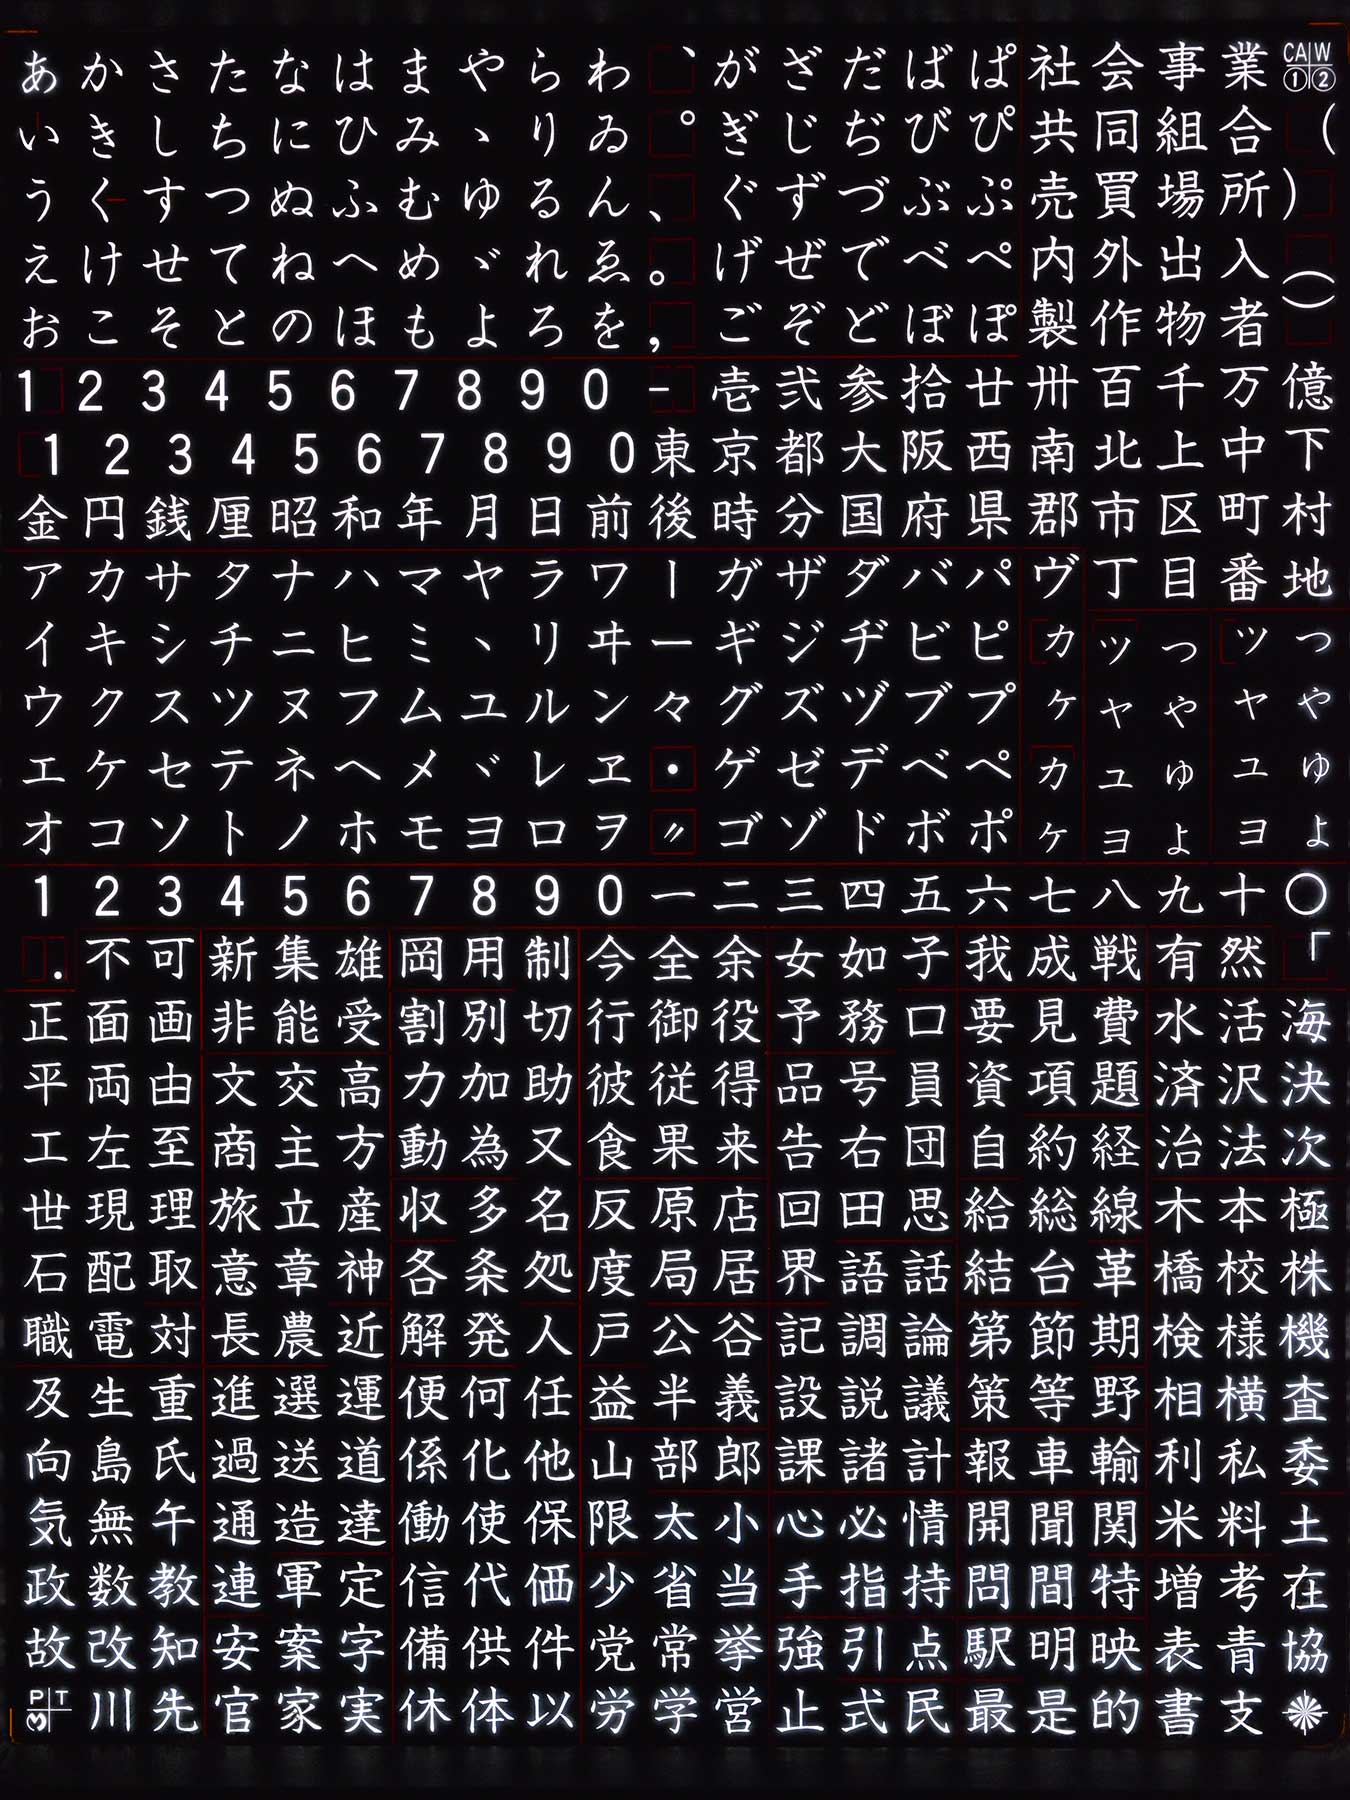 あかさたなはまやらわ、がざだばぱ社会事業CA W ① ②
いきしちにひみヽりゐ。ぎじぢびぴ共同組合（
うくすつぬふむゆるん、ぐずづぶぷ売買場所）
えけせてねへめヾれゑ。げぜでべぺ内外出入︵
おこそとのほもよろを,ごぞどぼぽ製作物者︶
1234567890-壱弐参拾廿卅百千万億
1234567890東京都大阪西南北上中下
金円銭厘昭和年月日前後時分国府県郡市区町村
アカサタナハマヤラワ｜ガザダバパヴ丁目番地
イキシチニヒミヽリヰーギジヂビピヵッっッっ
ウクスツヌフムユルン々グズヅブプヶャゃャゃ
エケセテネヘメヾレヱ・ゲゼデベペヵュゅュゅ
オコソトノホモヨロヲ〃ゴゾドボポヶョょョょ
1234567890一二三四五六七八九十〇
.不可新集雄岡用制今全余女如子我成戦有然「
正面画非能受割別切行御役予務口要見費水活海
平両由文交高力加助彼従得品号員資項題済沢決
工左至商主方動為又食果来告右団自約経治法次
世現理旅立産収多名反原店回田思給総線木本極
石配取意章神各条処度局居界語話結台革橋校株
職電対長農近解発人戸公谷記調論第節期検様機
及生重進選運便何任益半義設説議策等野相横査
向島氏過送道係化他山部郎課諸計報車輸利私委
気無午通造達働使保限太小心必情開聞関米料土
政数教連軍定信代価少省当手指持問間特増考在
故改知安案字備供件党常挙強引点駅明映表青協
P T 3川先官家実休体以労学営止式民最是的書支